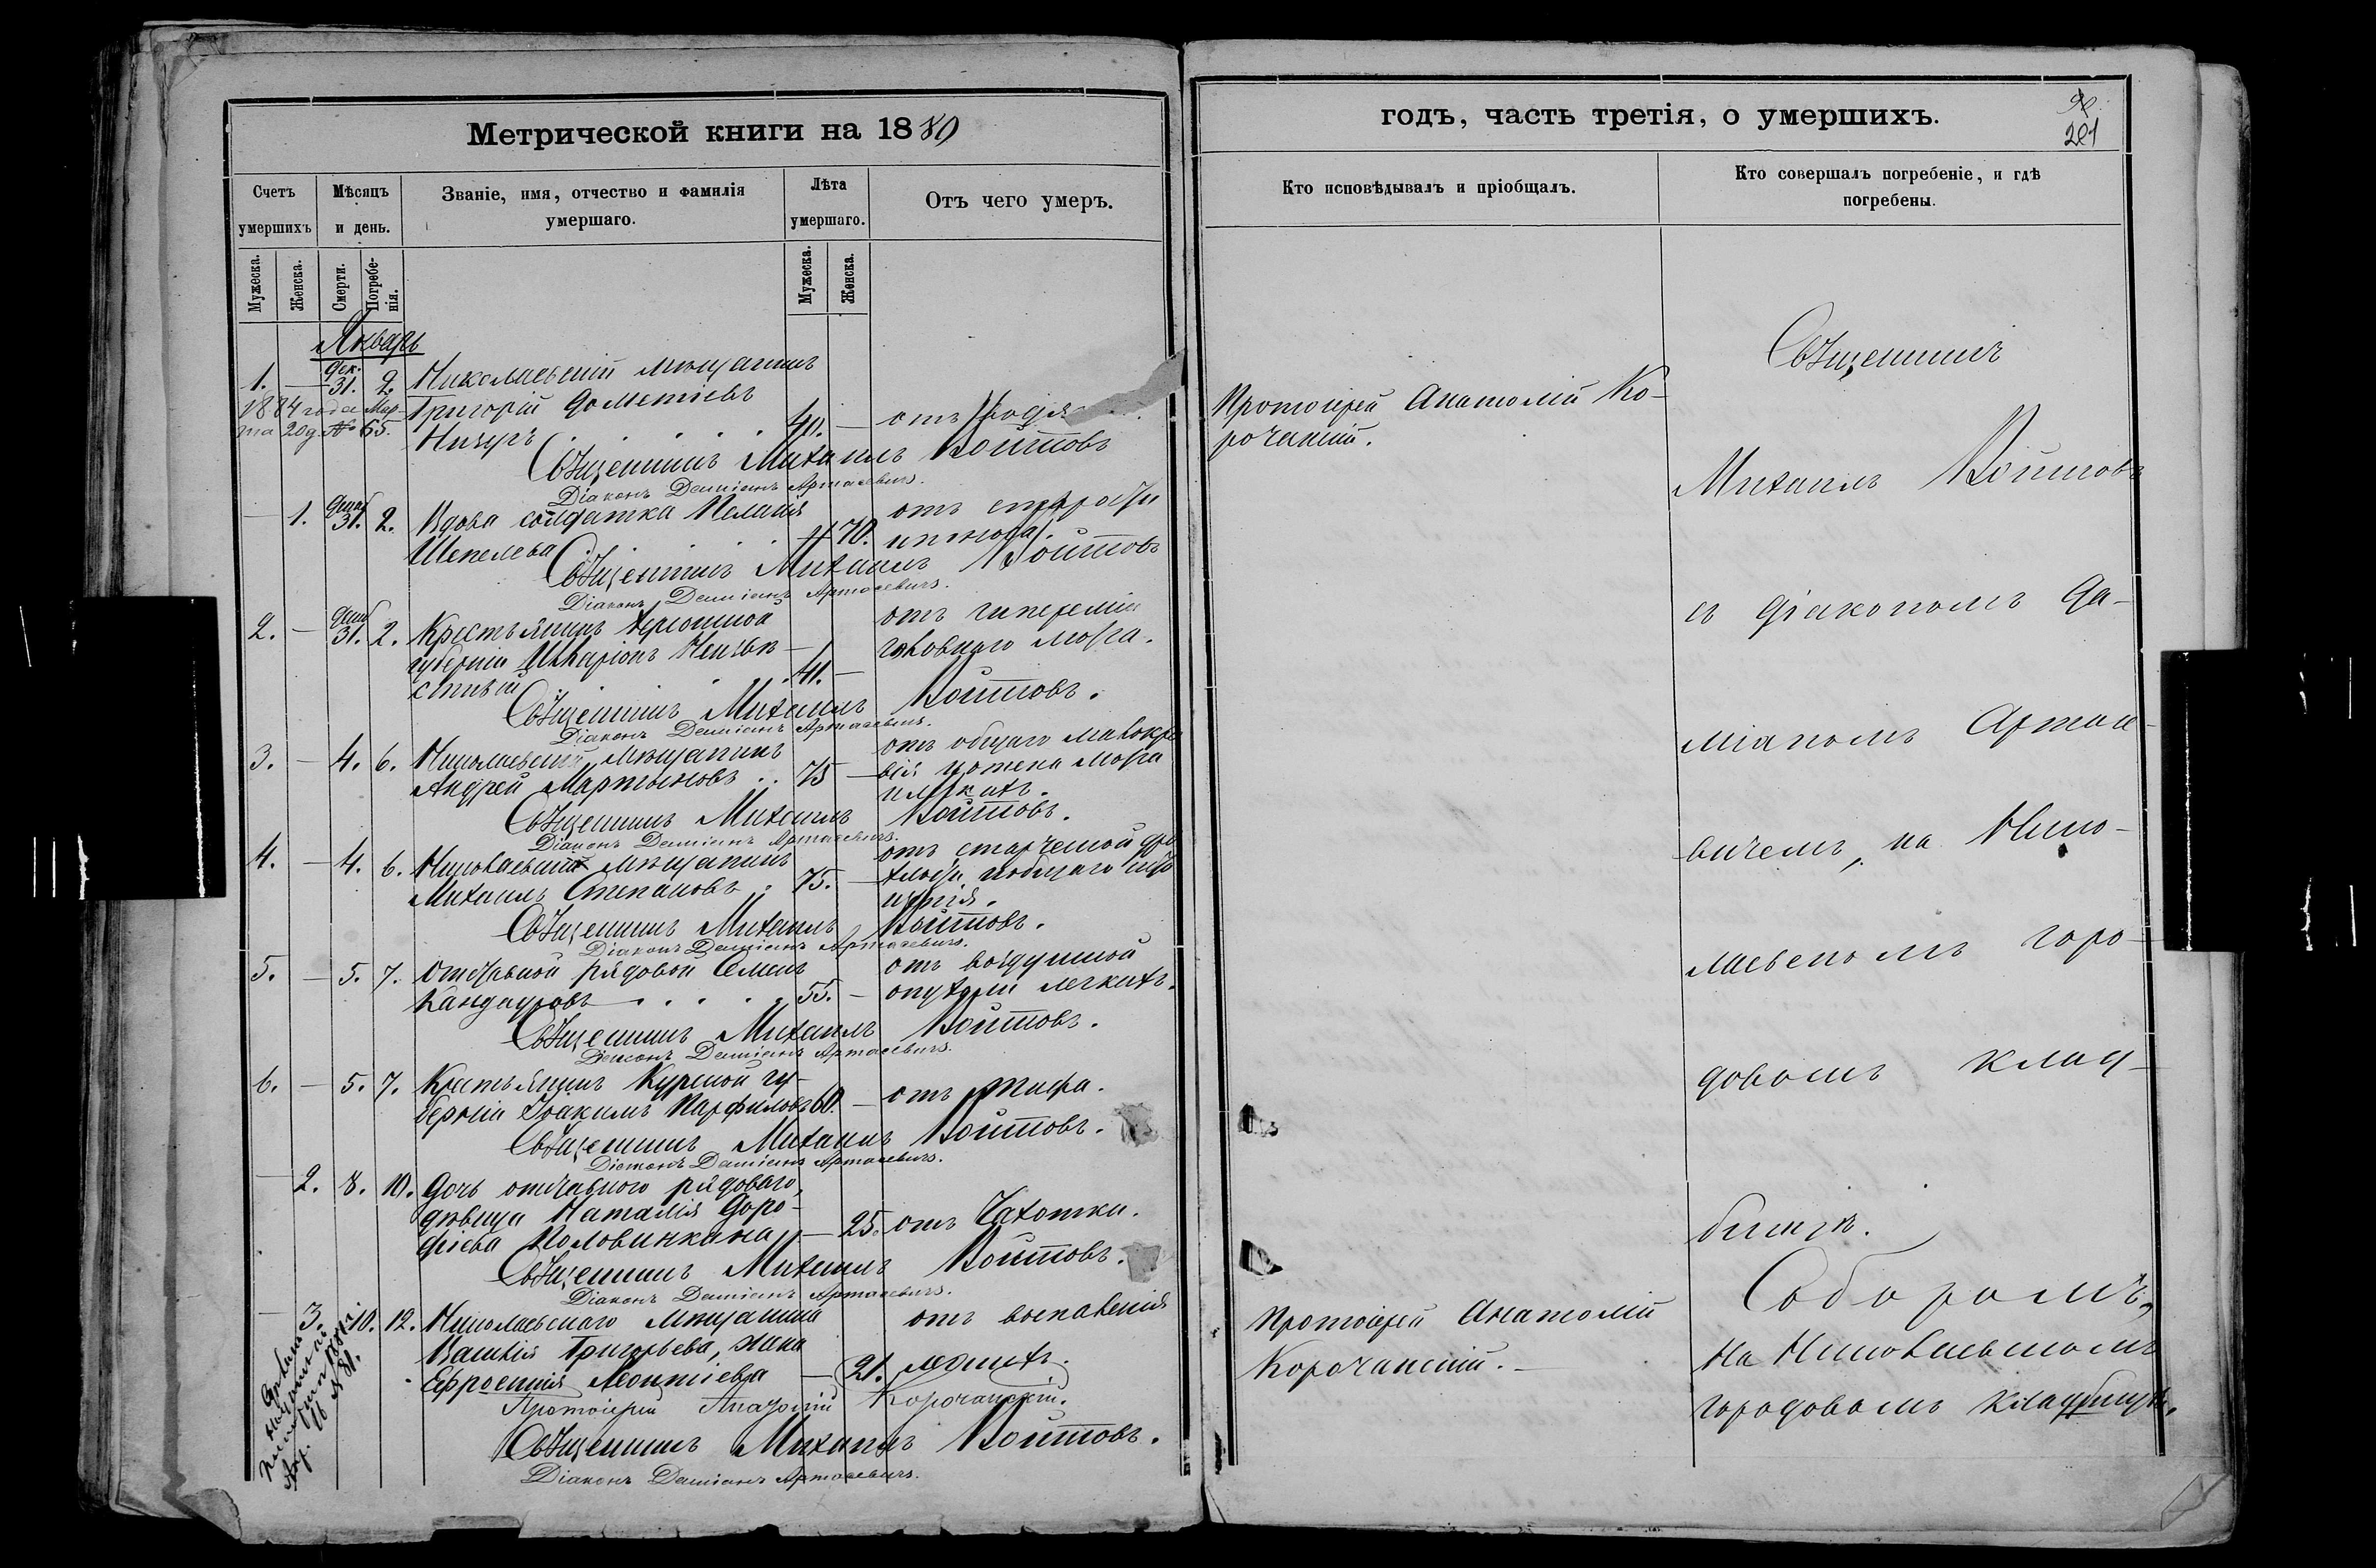 Метрической книги на 1880
Счетъ умершихъ
Мѣсяцъ и день.
Званіе, имя, отчество и фамилія умершаго.
Лѣта умершаго.
Отъ чего умеръ.
Мужеска.
Женска.
Смерти.
Погребе-
нія.
Мужеска.
Женска.
Январь
1. — Дек. 31. 2. Николаевскій мѣщанинъ
1884 года Мар-
та 20 д. № 65.
Григорій Дометіевъ
40. — отъ
Священникъ Михаилъ Войтовъ
Діаконъ Даміанъ Артасевичъ.
— 1. Декаб 31. 2. Вдова солдатка Пелагія
отъ старости
Шепелева
70.
Священникъ Михаилъ Войтовъ
Діаконъ Даміанъ Артасевичъ.
2. — Декаб 31. 2. Крестьянинъ Херсонской
отъ гипереміи
губерніи Илларіонъ
головнаго мозга.
41. —
Священникъ Михаилъ Войтовъ.
Діаконъ Даміанъ Артасевичъ.
3. — 4. 6. Николаевскій мѣщанинъ
отъ общаго малокро-
Андрей Мартыновъ . . 75 —
вія и отека мозга
и легкихъ.
Священникъ Михаилъ Войтовъ.
Діаконъ Даміанъ Артасевичъ.
4. — 4. 6. Николаевскій мѣщанинъ
отъ старческой дря-
Михаилъ Степановъ . 75. —
хлости и общаго
Священникъ Михаилъ Войтовъ.
Діаконъ Даміанъ Артасевичъ.
5. — 5. 7. Отставной рядовой Семенъ
отъ воздушной
Кандауровъ . . . . 55. —
опухоли легкихъ.
Священникъ Михаилъ Войтовъ.
Діаконъ Даміанъ Артасевичъ.
6. — 5. 7. Крестьянинъ Курской гу-
берніи Іоакимъ Парфиловъ 60. — отъ тифа.
Священникъ Михаилъ Войтовъ.
Діаконъ Даміанъ Артасевичъ.
— 2. 8. 10. Дочь отставного рядоваго,
дѣвица Наталія Доро-
фіева Половинкина — 25. отъ Чахотки.
Священникъ Михаилъ Войтовъ.
Діаконъ Даміанъ Артасевичъ.
— 3. 10. 12. Николаевскаго мѣщанина
отъ воспаленія
Василія Григорьева, жена
Ефросинія Леонтіева — 21. легкихъ.
Протоіерей Анатолій Корочанскій.
Священникъ Михаилъ Войтовъ.
Діаконъ Даміанъ Артасевичъ.
годъ, часть третія, о умершихъ.
201
Кто исповѣдывалъ и пріобщалъ.
Кто совершалъ погребеніе, и гдѣ
погребены.
Протоіерей Анатолій Ко-
рочанскій.
Священникъ
Михаилъ Войтовъ
съ діакономъ Да-
міаномъ Артасе-
вичемъ, на Нико-
лаевскомъ горо-
довомъ клад-
бищѣ.
Протоіерей Анатолій
Корочанскій. —
Соборомъ,
на Николаевскомъ
городовомъ кладбищѣ.